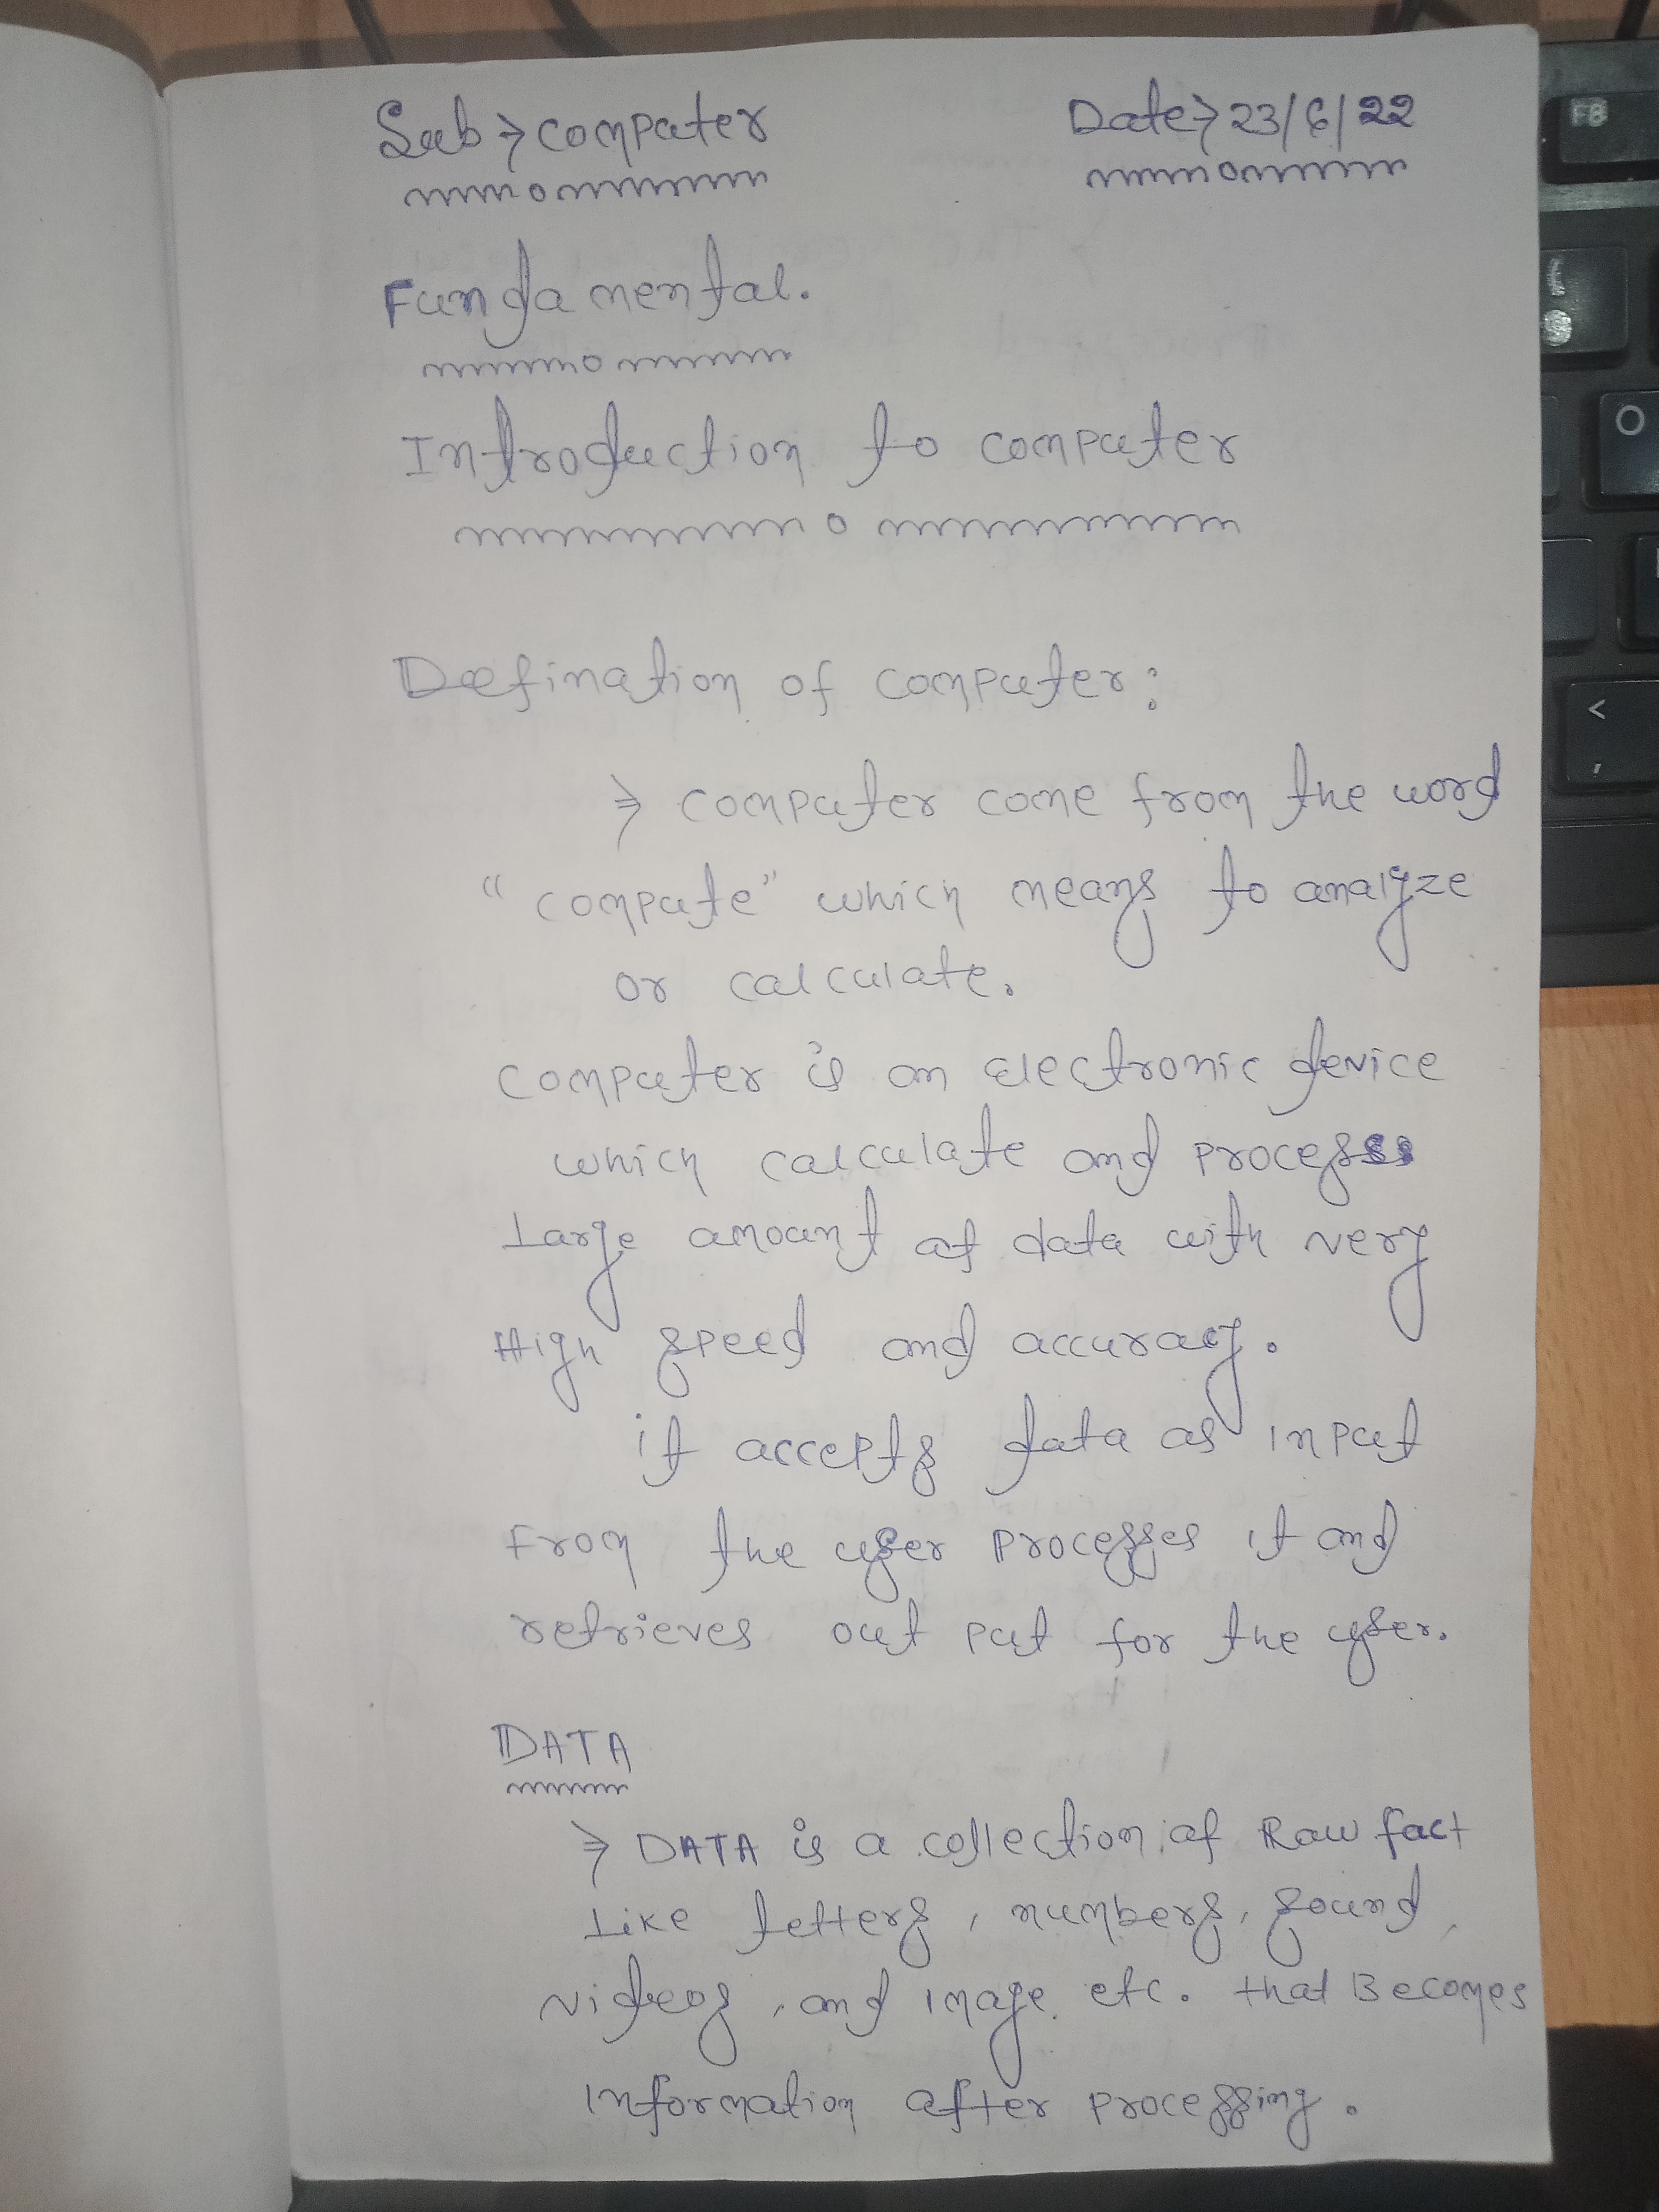 Sub → computer Date → 23/6/22
Fundamental.
Introduction to computer
Defination of computer:
→ computer come from the word
"compute" which means to analyze
or calculate.
computer is an electronic device
which calculate and process
large amount of data with very
High speed and accuracy.
it accepts data as input
From the user processes it and
retrieves out put for the user.
DATA
→ DATA is a collection of Raw fact
Like letters, numbers, sound,
videos, and image etc. that Becomes
Information after processing.
F8
O
<
,